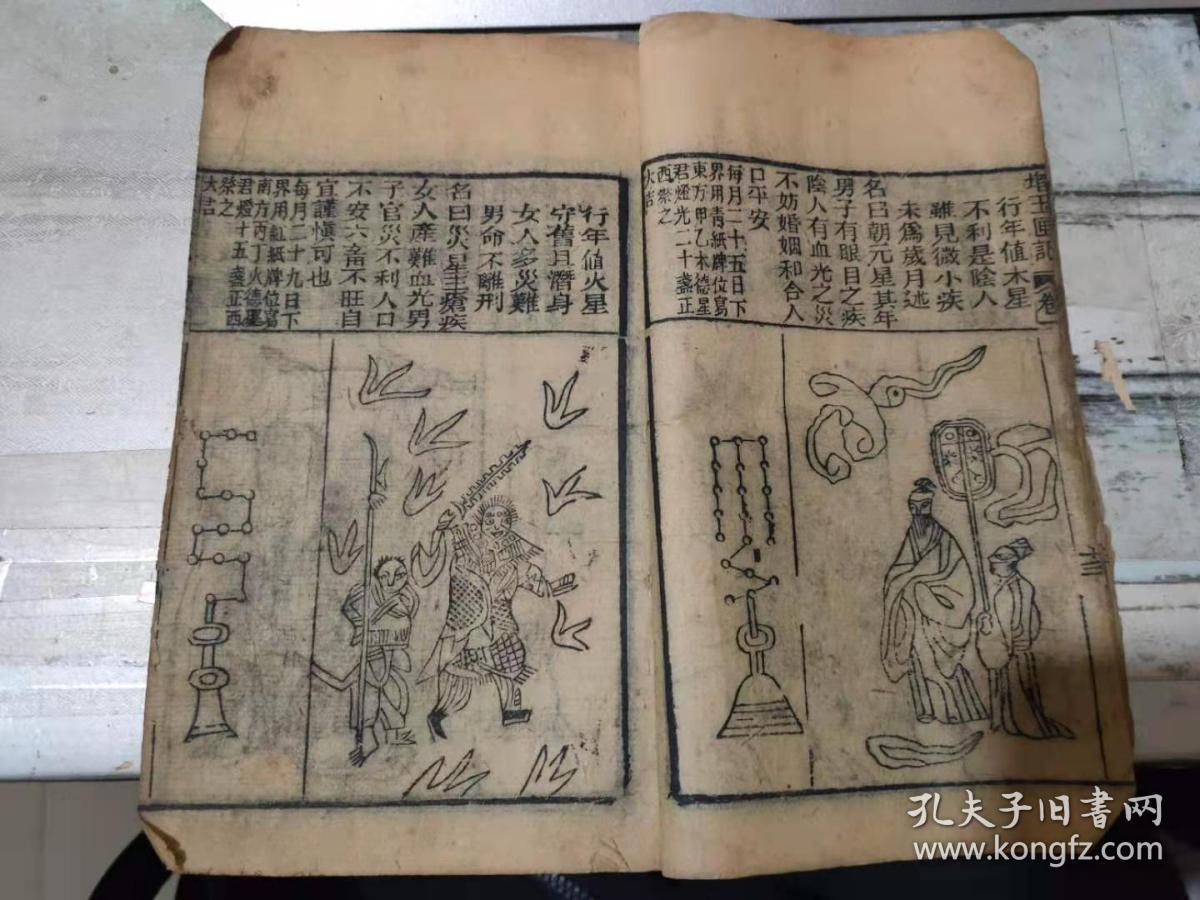 增補玉匣記 卷
行年值木星
不利是陰人
雖見微小疾
未為歲月述
名曰朝元星其年
男子有眼目之疾
陰人有血光之災
不妨婚姻和合人
口平安
每月二十五日下
界用青紙牌位寫
東方甲乙木德星
君燈光二十盞正
西祭之
大吉
行年值火星
守舊且潛身
女人多災難
男命不離刑
名曰災星主瘡疾
女人產難血光男
子官災不利人口
不安六畜不旺自
宜謹慎可也
每月二十九日下
界用紅紙牌位寫
南方丙丁火德星
君燈十五盞正西
祭之
大吉
孔夫子旧书网
www.kongfz.com